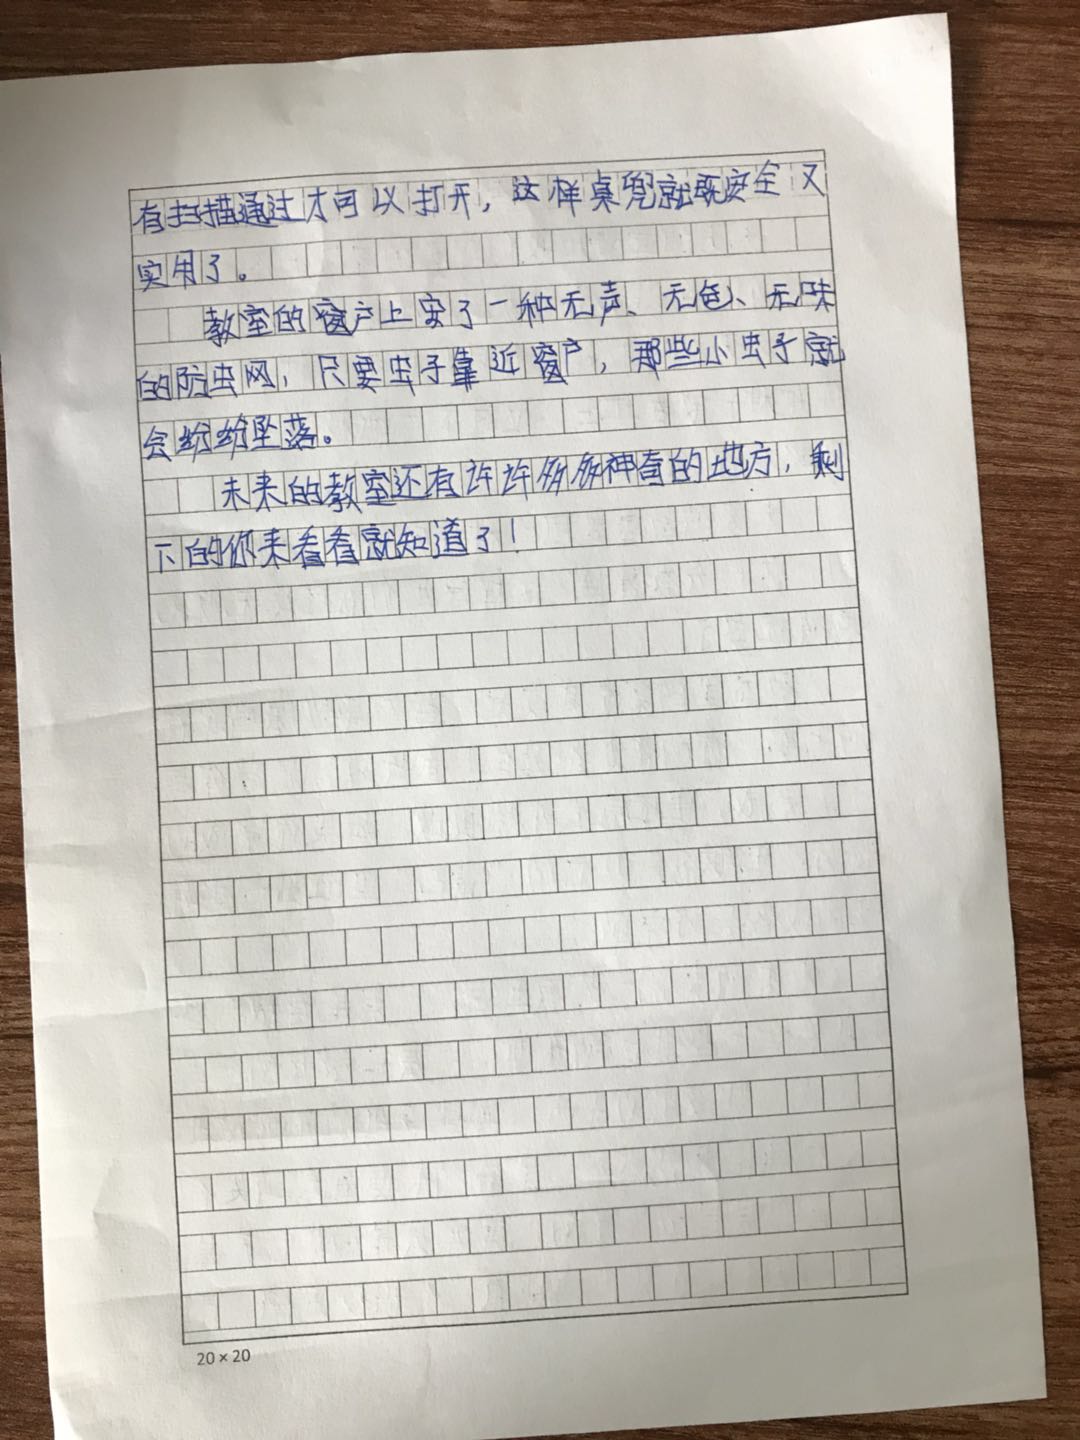 有扫描通过才可以打开，这样桌兜就既安全又
实用了。
教室的窗户上安了一种无声、无色、无味
的防虫网，只要虫子靠近窗户，那些小虫子就
会纷纷坠落。
未来的教室还有许许多多神奇的地方，剩
下的你来看看就知道了！
20×20